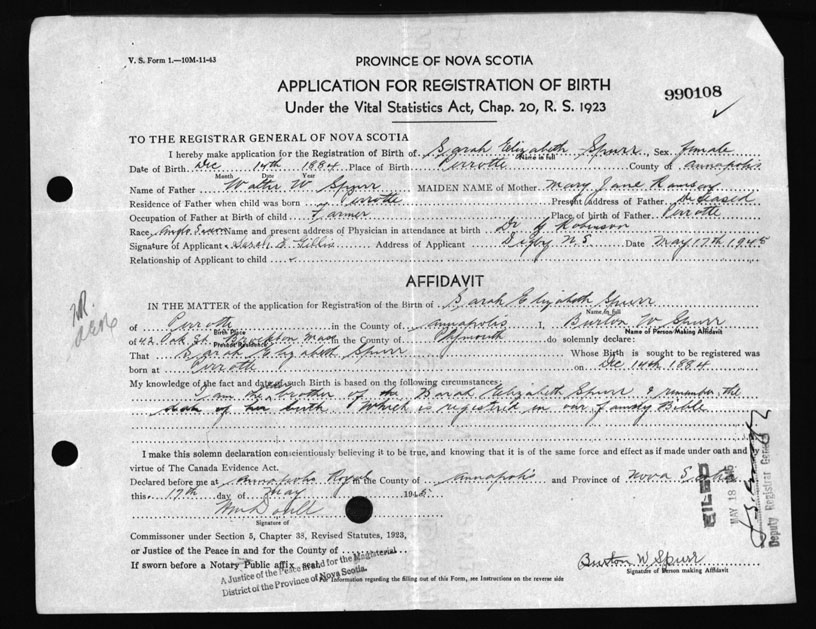 V. S. Form 1.—10M-11-43
PROVINCE OF NOVA SCOTIA
APPLICATION FOR REGISTRATION OF BIRTH
990108
Under the Vital Statistics Act, Chap. 20, R. S. 1923
TO THE REGISTRAR GENERAL OF NOVA SCOTIA
I hereby make application for the Registration of Birth of Sarah Elizabeth Spurr, Sex female
Name in full
Date of Birth Dec 14th 1884 Place of Birth Perrotte County of Annapolis
Month Date Year
Name of Father Walter W Spurr MAIDEN NAME of Mother Mary Jane Ramsay
Residence of Father when child was born Perrotte Present address of Father Deceased
Occupation of Father at Birth of child Farmer Place of birth of Father Perrotte
Race, Anglo Saxon Name and present address of Physician in attendance at birth Dr Robinson
Signature of Applicant Sarah E Gillis Address of Applicant Digby N.S. Date May 17th 1945
Relationship of Applicant to child
AFFIDAVIT
IN THE MATTER of the application for Registration of the Birth of Sarah Elizabeth Spurr
Name in full
of Perrotte in the County of Annapolis I, Burton W Spurr
Birth Place Name of Person Making Affidavit
of 42 Oak St. Brockton Mass in the County of Plymouth do solemnly declare:
Present Residence
That Sarah Elizabeth Spurr Whose Birth is sought to be registered was
born at Perrotte on Dec 14th 1884
My knowledge of the fact and date of such Birth is based on the following circumstances:
I am the brother of the Sarah Elizabeth Spurr & remember the
date of her birth. Which is registred in our family Bible
I make this solemn declaration conscientiously believing it to be true, and knowing that it is of the same force and effect as if made under oath and
virtue of The Canada Evidence Act.
Declared before me at Annapolis Royal in the County of Annapolis and Province of Nova Scotia
this 17th day of May 1945
Signature of
Commissioner under Section 5, Chapter 38, Revised Statutes, 1923,
or Justice of the Peace in and for the County of
If sworn before a Notary Public affix seal.
A Justice of the Peace in and for the Magisterial
District of the Province of Nova Scotia.
Burton W Spurr
Signature of Person making Affidavit
For Information regarding the filling out of this Form, see Instructions on the reverse side
FILED
MAY 18
Deputy Registrar General